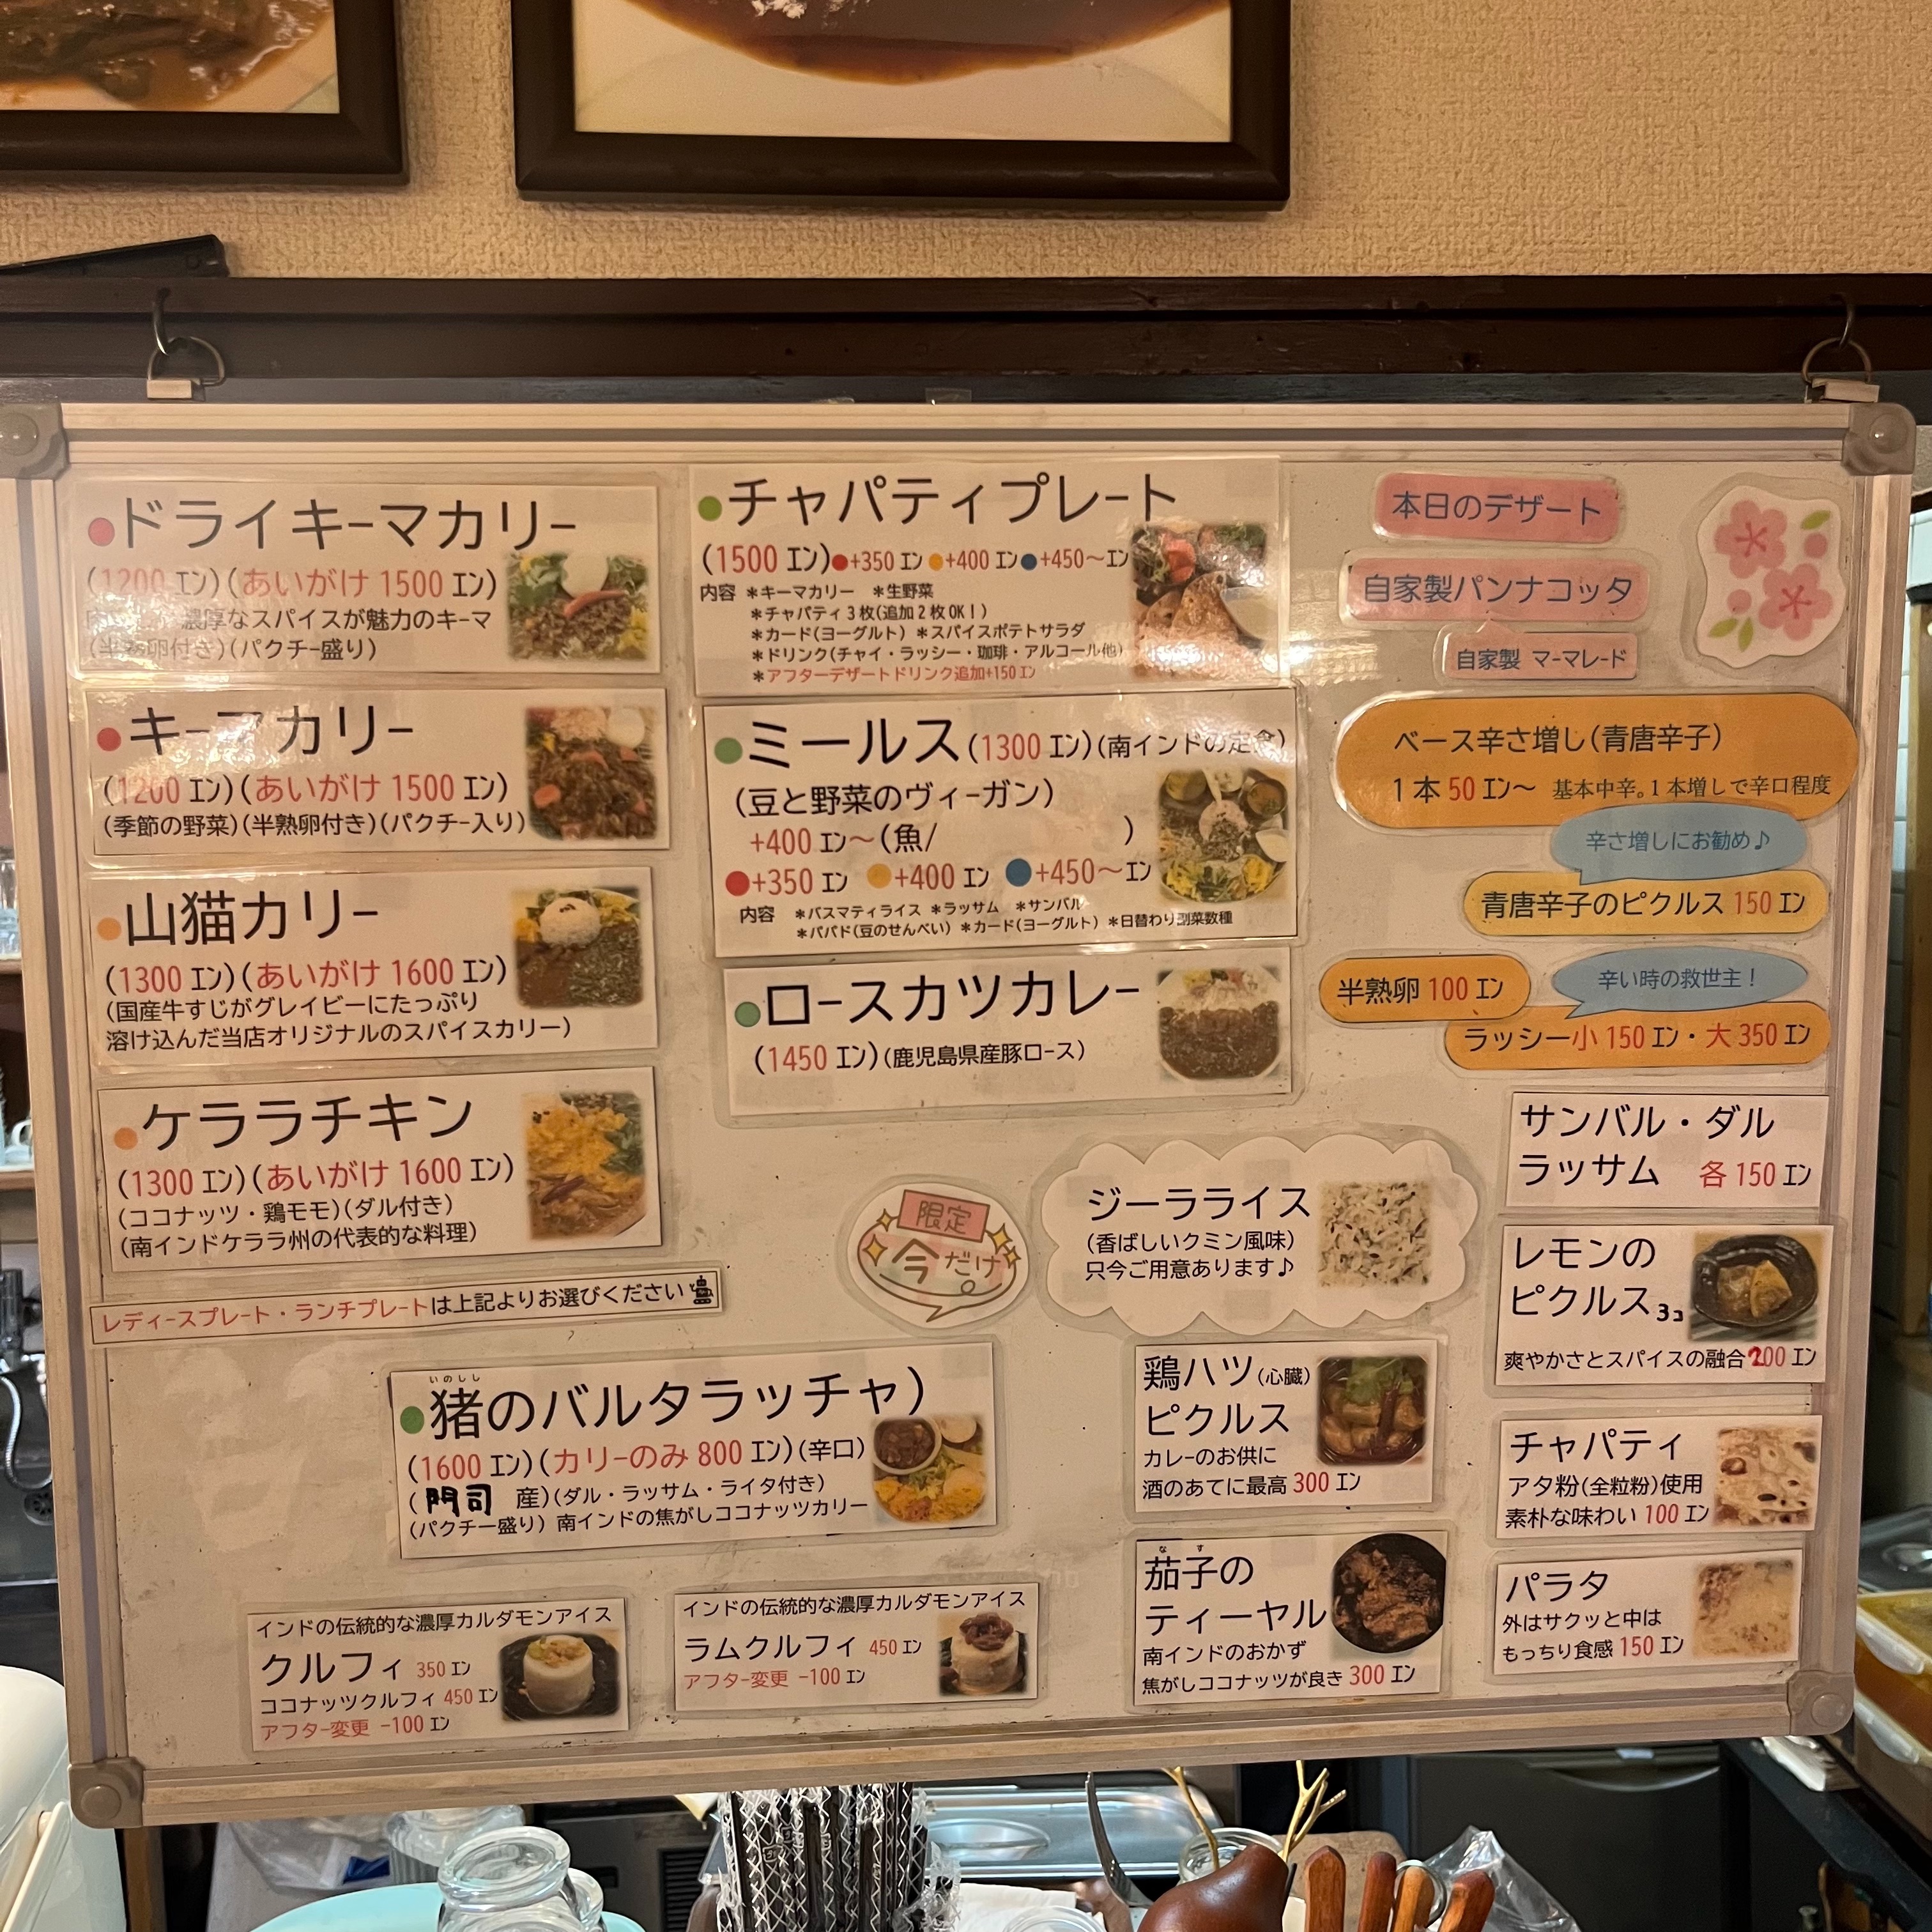 ドライキーマカリー
(1200 エン)(あいがけ 1500 エン)
濃厚なスパイスが魅力のキーマ
(半熟卵付き)(パクチー盛り)
キーマカリー
(1200 エン)(あいがけ 1500 エン)
(季節の野菜)(半熟卵付き)(パクチー入り)
山猫カリー
(1300 エン)(あいがけ 1600 エン)
(国産牛すじがグレイビーにたっぷり
溶け込んだ当店オリジナルのスパイスカリー)
ケララチキン
(1300 エン)(あいがけ 1600 エン)
(ココナッツ・鶏モモ)(ダル付き)
(南インドケララ州の代表的な料理)
レディースプレート・ランチプレートは上記よりお選びください
チャパティプレート
(1500 エン)●+350 エン●+400 エン●+450〜エン
内容 *キーマカリー *生野菜
*チャパティ3枚(追加2枚OK!)
*カード(ヨーグルト) *スパイスポテトサラダ
*ドリンク(チャイ・ラッシー・珈琲・アルコール他)
*アフターデザートドリンク追加+150エン
ミールス(1300 エン)(南インドの定食)
(豆と野菜のヴィーガン)
+400 エン〜(魚/ )
●+350 エン ●+400 エン ●+450〜エン
内容 *バスマティライス *ラッサム *サンバル
*パパド(豆のせんべい) *カード(ヨーグルト) *日替わり副菜数種
ロースカツカレー
(1450 エン)(鹿児島県産豚ロース)
本日のデザート
自家製パンナコッタ
自家製 マーマレード
ベース辛さ増し(青唐辛子)
1本50エン〜 基本中辛。1本増しで辛口程度
辛さ増しにお勧め♪
青唐辛子のピクルス 150 エン
半熟卵 100 エン
辛い時の救世主!
ラッシー小 150 エン・大 350 エン
サンバル・ダル
ラッサム 各 150 エン
限定
今だけ
ジーラライス
(香ばしいクミン風味)
只今ご用意あります♪
レモンの
ピクルス3コ
爽やかさとスパイスの融合200 エン
いのしし
猪のバルタラッチャ)
(1600 エン)(カリーのみ 800 エン)(辛口)
(門司 産)(ダル・ラッサム・ライタ付き)
(パクチー盛り) 南インドの焦がしココナッツカリー
鶏ハツ(心臓)
ピクルス
カレーのお供に
酒のあてに最高 300 エン
チャパティ
アタ粉(全粒粉)使用
素朴な味わい 100 エン
なす
茄子の
ティーヤル
南インドのおかず
焦がしココナッツが良き 300 エン
パラタ
外はサクッと中は
もっちり食感 150 エン
インドの伝統的な濃厚カルダモンアイス
クルフィ 350 エン
ココナッツクルフィ 450 エン
アフター変更 -100 エン
インドの伝統的な濃厚カルダモンアイス
ラムクルフィ 450 エン
アフター変更 -100 エン